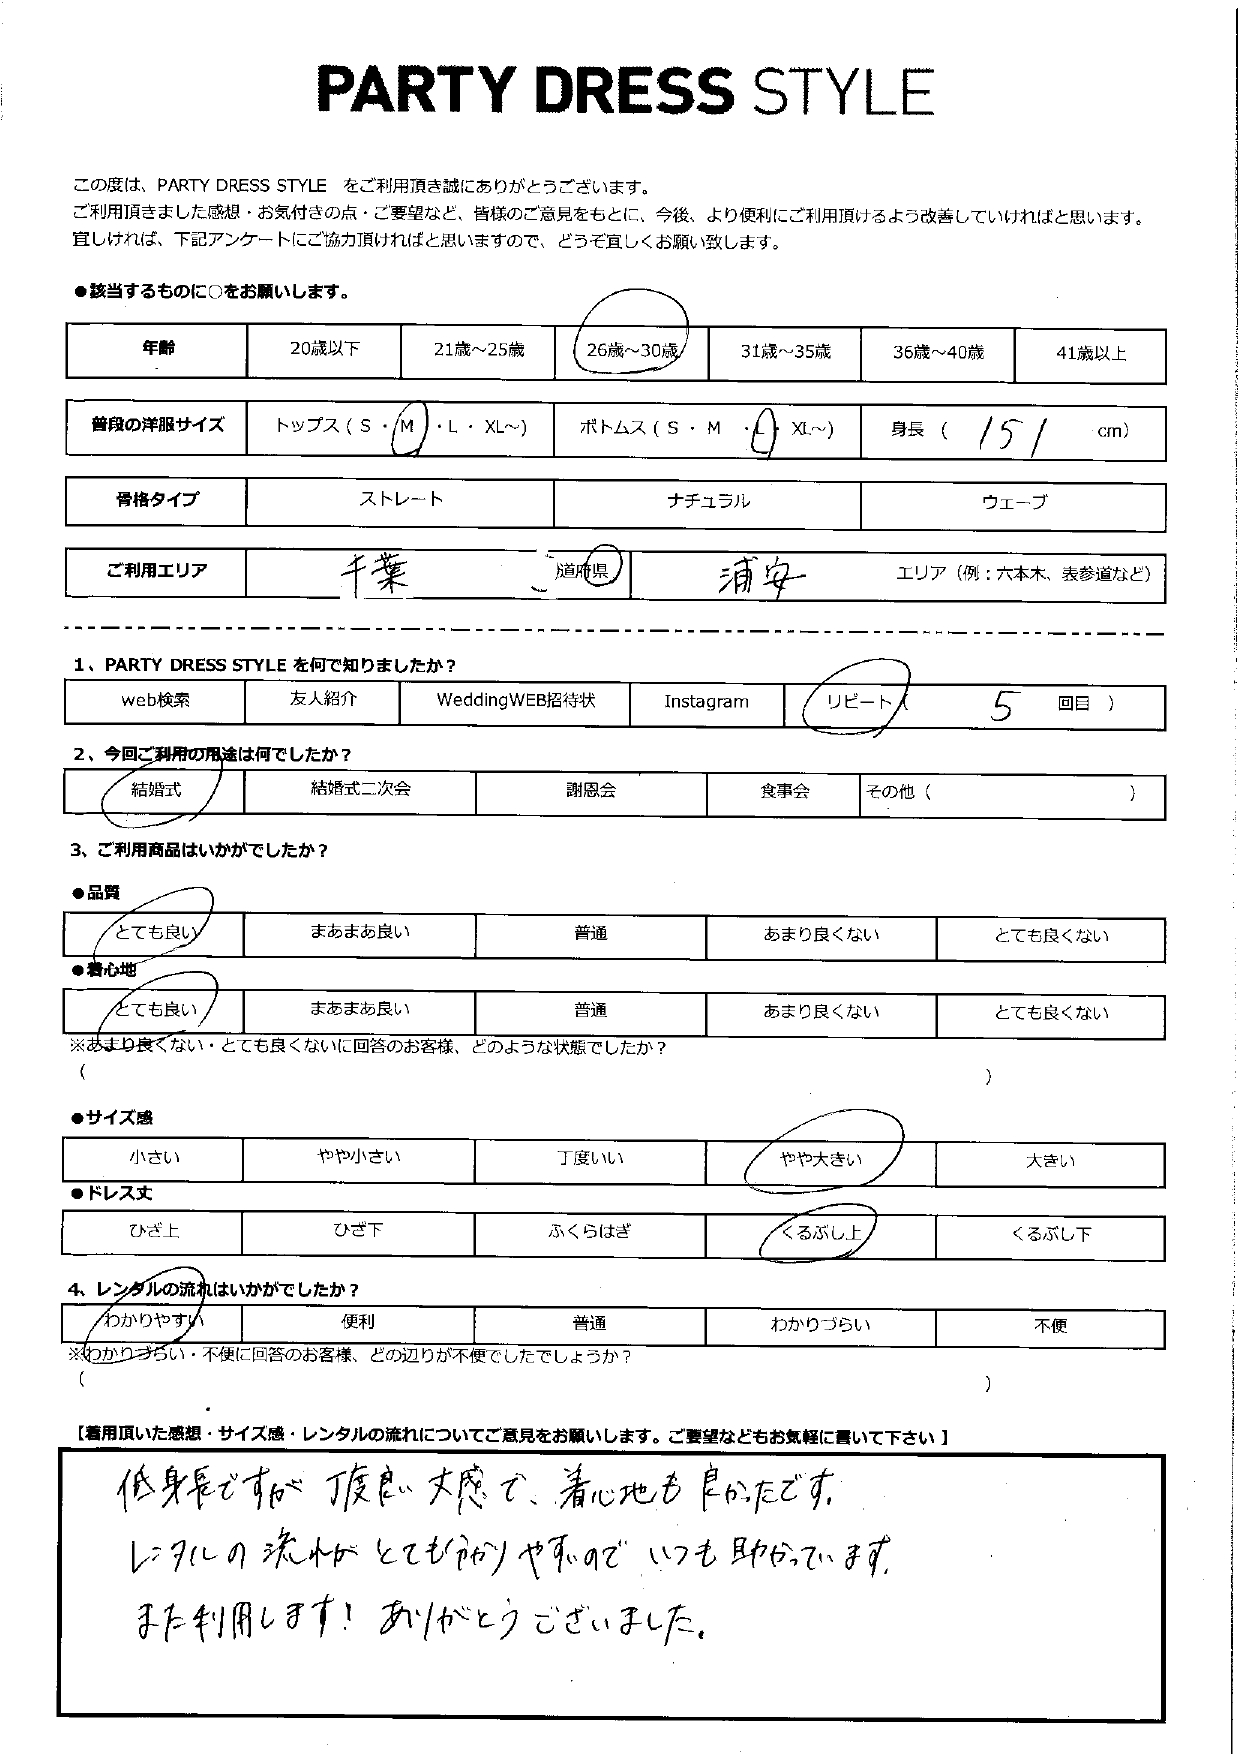 PARTY DRESS STYLE
この度は、PARTY DRESS STYLE をご利用頂き誠にありがとうございます。
ご利用頂きました感想・お気付きの点・ご要望など、皆様のご意見をもとに、今後、より便利にご利用頂けるよう改善していければと思います。
宜しければ、下記アンケートにご協力頂ければと思いますので、どうぞ宜しくお願い致します。
●該当するものに○をお願いします。
年齢 20歳以下 21歳～25歳 26歳～30歳 31歳～35歳 36歳～40歳 41歳以上
普段の洋服サイズ トップス（ S ・ M ・ L ・ XL～) ボトムス（ S ・ M ・ L ・ XL～) 身長（ 151 cm）
骨格タイプ ストレート ナチュラル ウェーブ
ご利用エリア 千葉 道府県 浦安 エリア（例：六本木、表参道など）
1、PARTY DRESS STYLE を何で知りましたか？
web検索 友人紹介 WeddingWEB招待状 Instagram リピート（ 5 回目 ）
2、今回ご利用の用途は何でしたか？
結婚式 結婚式二次会 謝恩会 食事会 その他（ ）
3、ご利用商品はいかがでしたか？
●品質
とても良い まあまあ良い 普通 あまり良くない とても良くない
●着心地
とても良い まあまあ良い 普通 あまり良くない とても良くない
※あまり良くない・とても良くないに回答のお客様、どのような状態でしたか？
（ ）
●サイズ感
小さい やや小さい 丁度いい やや大きい 大きい
●ドレス丈
ひざ上 ひざ下 ふくらはぎ くるぶし上 くるぶし下
4、レンタルの流れはいかがでしたか？
わかりやすい 便利 普通 わかりづらい 不便
※わかりづらい・不便に回答のお客様、どの辺りが不便でしたでしょうか？
（ ）
【着用頂いた感想・サイズ感・レンタルの流れについてご意見をお願いします。ご要望などもお気軽に書いて下さい】
低身長ですが 丁度良い 丈感で、着心地も 良かったです。
レンタルの 流れが とても分かりやすいので いつも 助かっています。
また利用します! ありがとうございました。